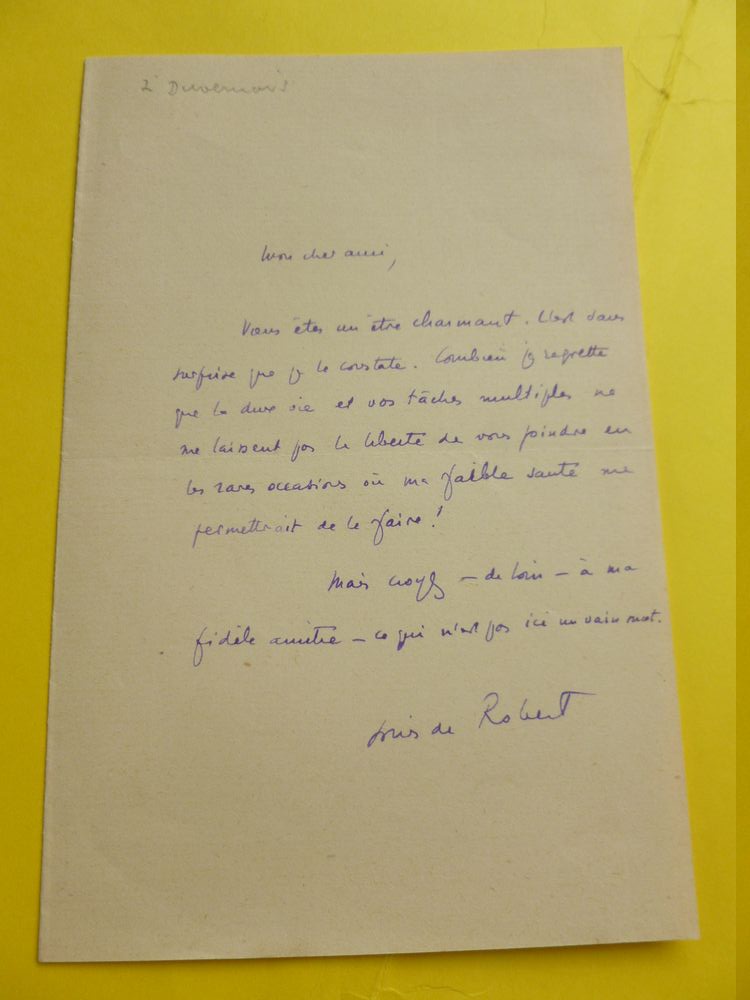 Duvernois
Mon cher ami,
Vous êtes un être charmant. C'est sans
surprise que je le constate. Combien je regrette
que la dure vie et vos tâches multiples ne
me laissent pas la liberté de vous joindre en
les rares occasions où ma faible santé me
permettrait de le faire !
Mais croyez – de loin – à ma
fidèle amitié – ce qui n'est pas ici un vain mot.
Louis de Robert